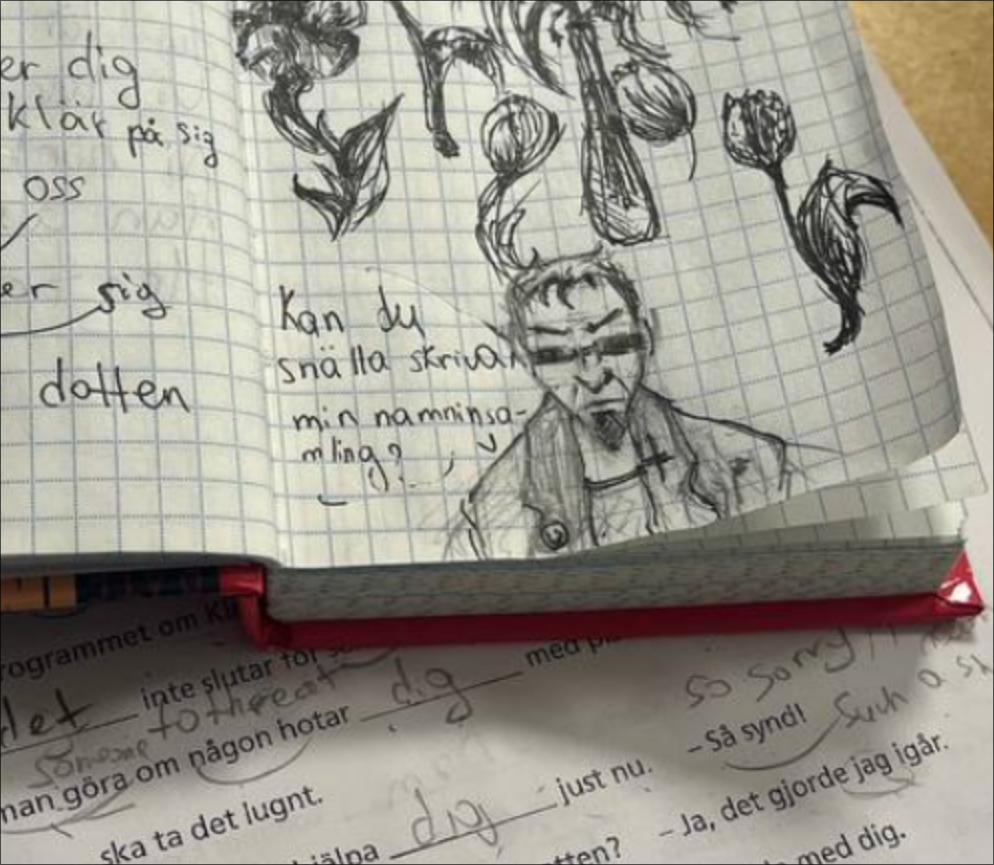 er dig
klär på sig
oss
er sig
datten
Kan du
snälla skriva
min namninsa-
mling?
rogrammet om
det inte slutar för
someone to threat
man göra om någon hotar dig med
ska ta det lugnt.
hjälpa dig just nu.
so sorry!!
– Så synd! Such a
– Ja, det gjorde jag igår.
tten?
med dig.